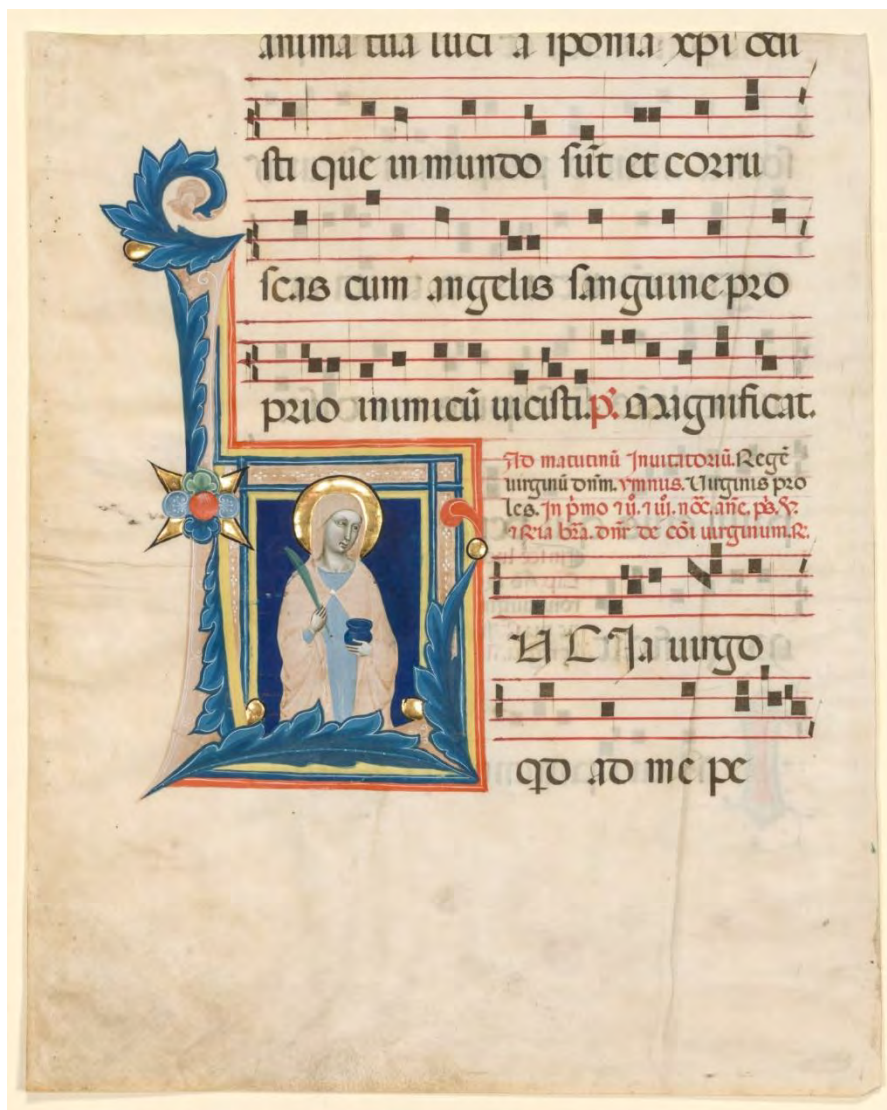 anima tua luci a sponsa xp̄i odi
sti que in mundo sūt et corru
scas cum angelis sanguine pro
prio inimicū uicisti. p̄. Magnificat.
Ad matutinū Inuitatoriū. Regē
uirginū dn̄m. ymnus. Uirginis pro
les. In p̄mo
uirginum. R.
U C Ia uirgo
qd ad me pe